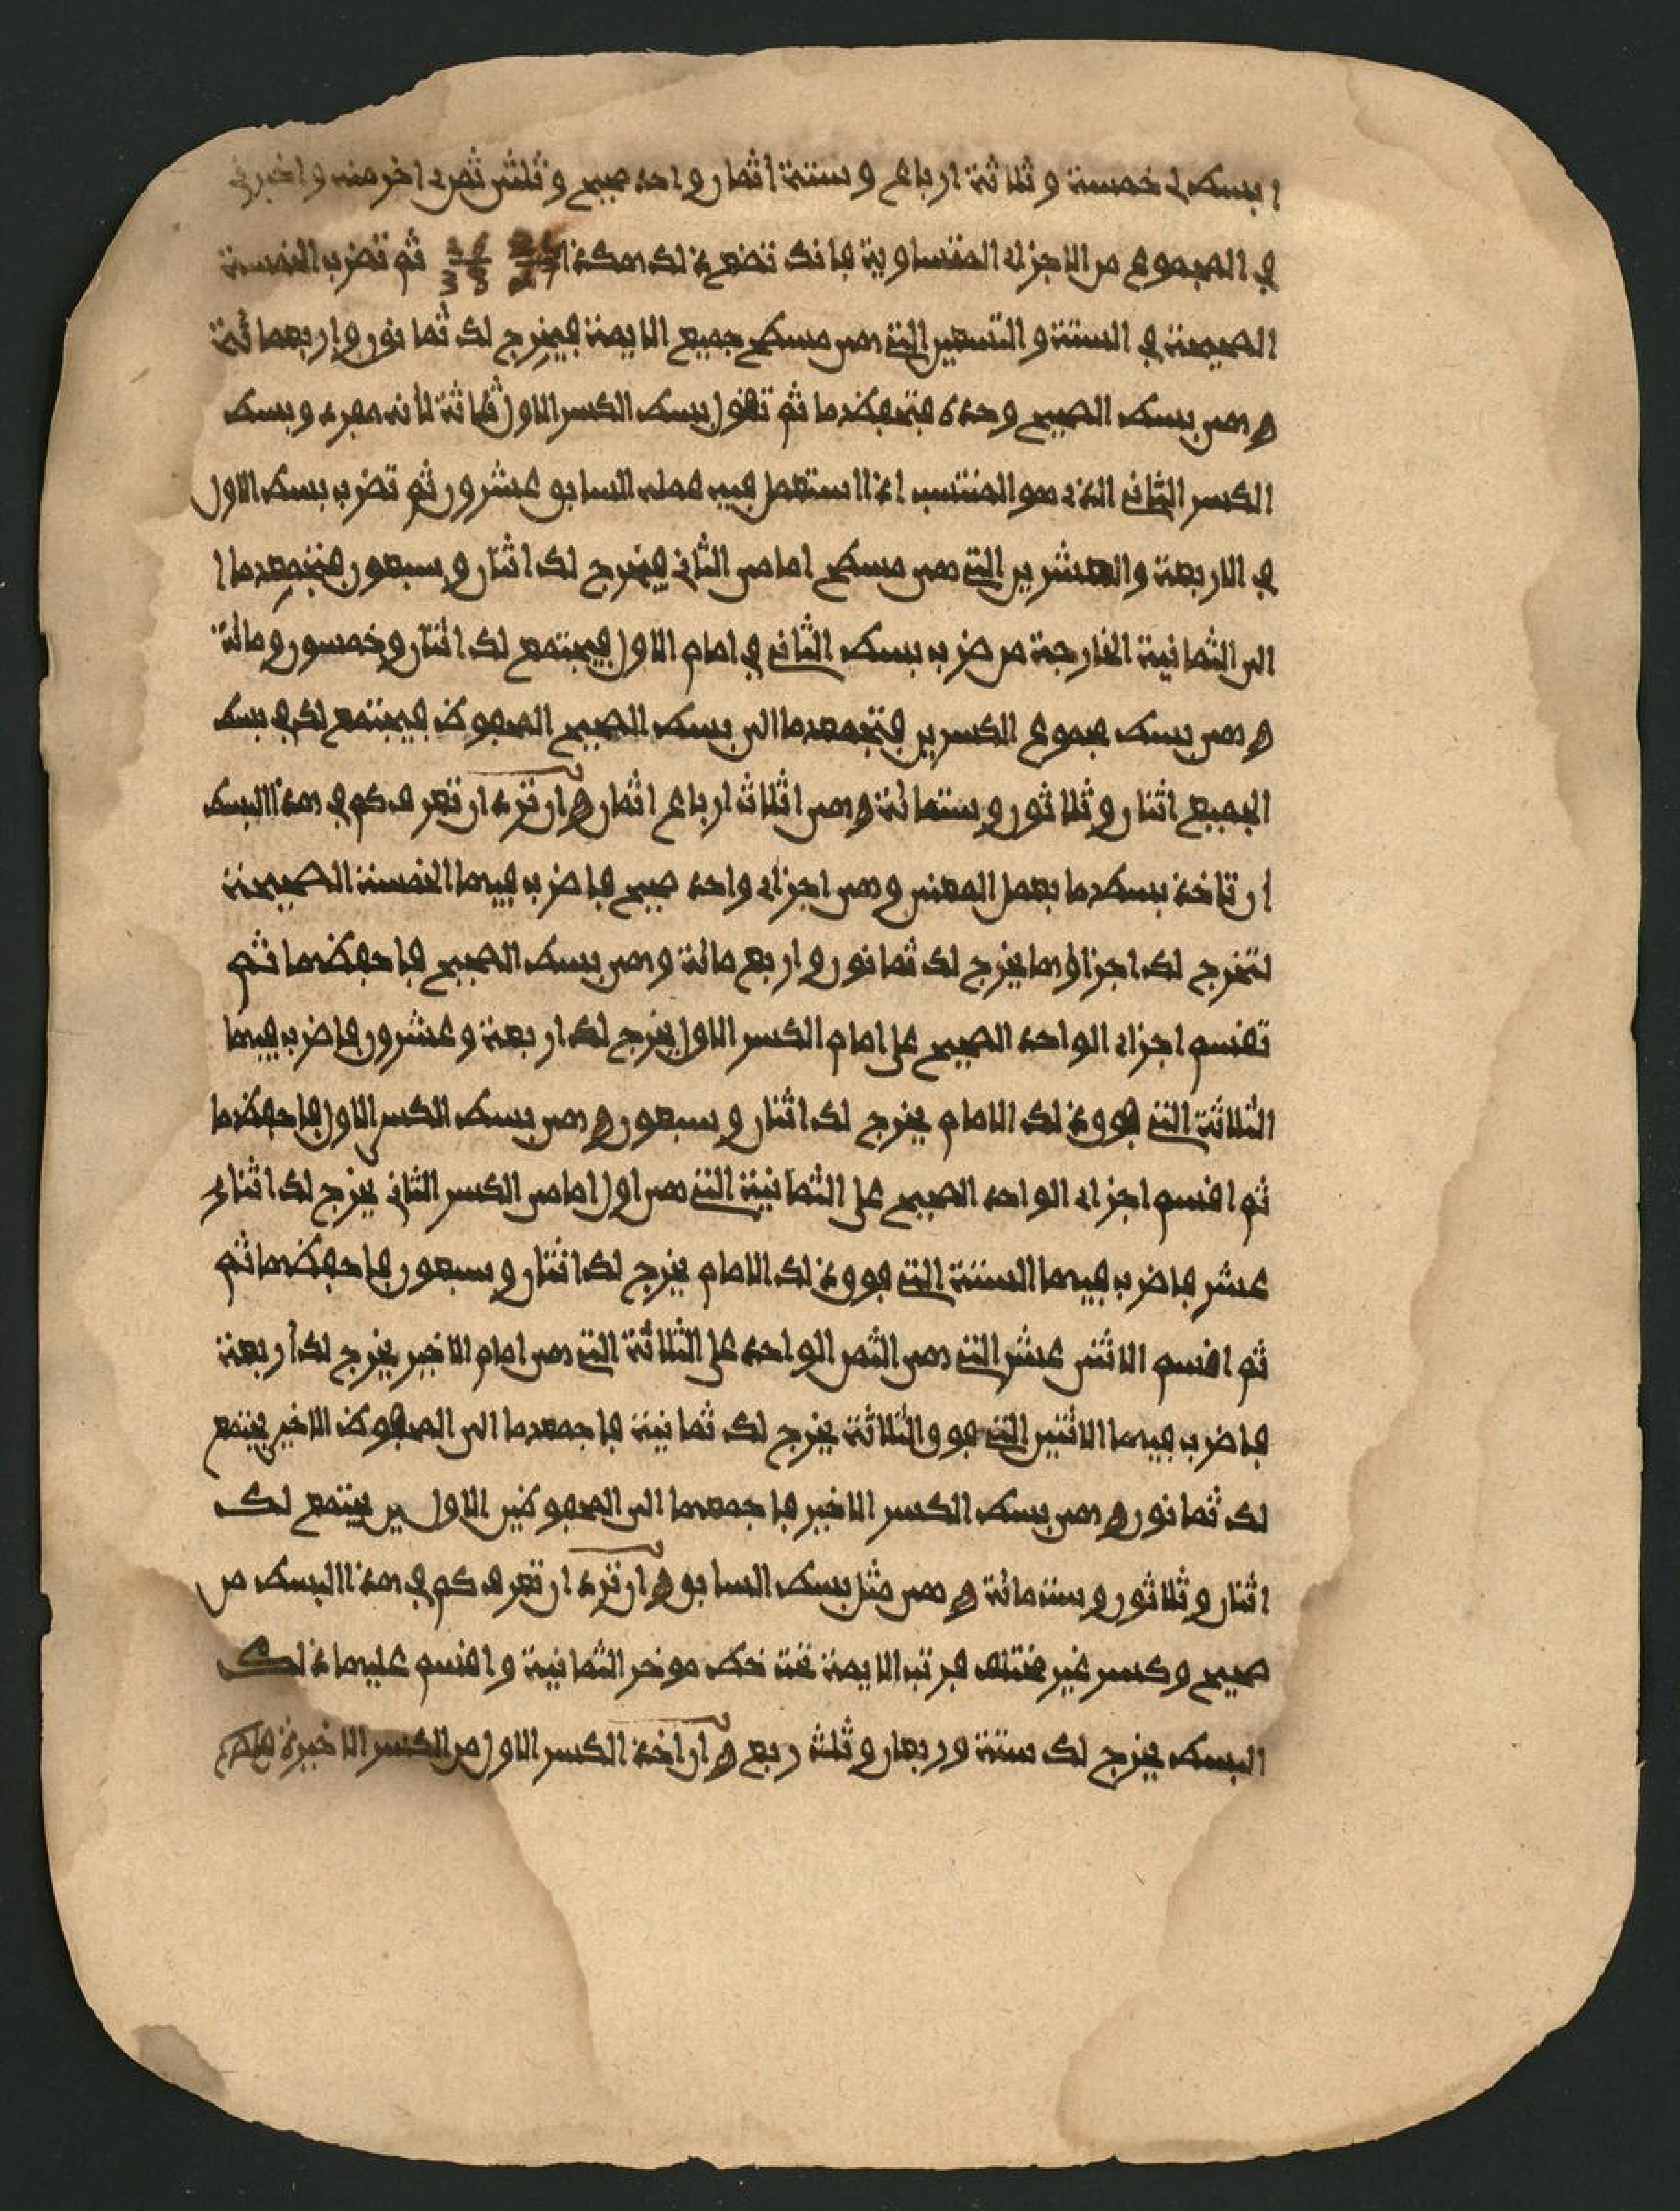 ابسط لي خمسة وثلاثة ارباع وستة اثمان واحد صحيح وثلثي ثمن اخر منه واخبرني
في المجموع من الاجزاء المتساوية فانك تضع ذلك هكذا ثم تضرب الخمسة
الصحيحة في الستة والتسعين التي هي مسطح جميع الايمة فيخرج لك ثمانون واربعمائة
وهي بسط الصحيح وحده فتحفظها ثم تقول بسط الكسر الاول ثلاثة لانه مفرد وبسط
الكسر الثاني الذي هو المنتسب اذا استعمل فيه عمله السابق عشرون ثم تضرب بسط الاول
في الاربعة والعشرين التي هي مسطح امامي الثاني فيخرج لك اثنان وسبعون فتجمعها
الى الثمانية الخارجة من ضرب بسط الثاني في امام الاول فيجتمع لك اثنان وخمسون ومائة
وهي بسط مجموع الكسرين فتجمعها الى بسط الصحيح المحفوظ فيجتمع لك في بسط
الجميع اثنان وثلاثون وستمائة وهي اثلاث ارباع اثمان وان ترد ان تعرف كم في هذا البسط
ان تاخذ بسطها بعمل المعنى وهي اجزاء واحد صحيح فاضرب فيها الخمسة الصحيحة
لتخرج لك اجزاؤها يخرج لك ثمانون واربع مائة وهي بسط الصحيح فاحفظها ثم
تقسم اجزاء الواحد الصحيح على امام الكسر الاول يخرج لك اربعة وعشرون فاضرب فيها
الثلاثة التي فوق ذلك الامام يخرج لك اثنان وسبعون وهي بسط الكسر الاول فاحفظها
ثم اقسم اجزاء الواحد الصحيح على الثمانية التي هي اول امامي الكسر الثاني يخرج لك اثنا
عشر فاضرب فيها الستة التي فوق ذلك الامام يخرج لك اثنان وسبعون فاحفظها ثم
ثم اقسم الاثني عشر التي هي الثمن الواحد على الثلاثة التي هي امام الاخير يخرج لك اربعة
فاضرب فيها الاثنين التي فوق الثلاثة يخرج لك ثمانية فاجمعها الى المحفوظ الاخير يجتمع
لك ثمانون وهي بسط الكسر الاخير فاجمعها الى المحفوظين الاولين يجتمع لك
اثنان وثلاثون وستمائة وهي مثل بسط السابق وان ترد ان تعرف كم في هذا البسط من
صحيح وكسر غير مختلف فرتب الايمة تحت خط موخر الثمانية واقسم عليها ذلك
البسط يخرج لك ستة وربعان وثلث ربع وان اخذ الكسر الاول من الكسر الاخير